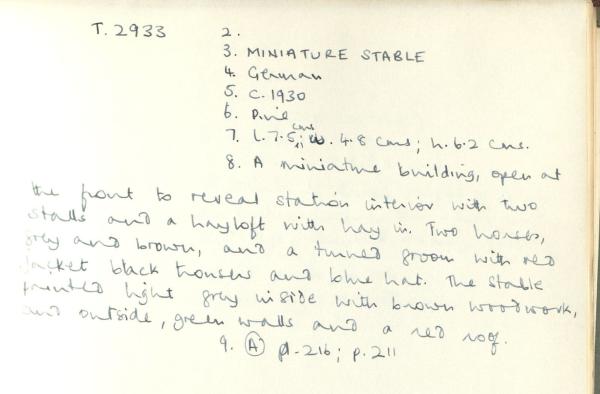 T.2933 2.
3. MINIATURE STABLE
4. German
5. C.1930
6. Pine
7. L.7.5 cms; w. 4.8 cms; h. 6.2 cms.
8. A miniature building, open at
the front to reveal station interior with two
stalls and a hayloft with hay in. Two horses,
grey and brown, and a turned groom with red
jacket black trousers and blue hat. The stable
painted light grey inside with brown woodwork,
and outside, green walls and a red roof.
9. A pl.216; p.211